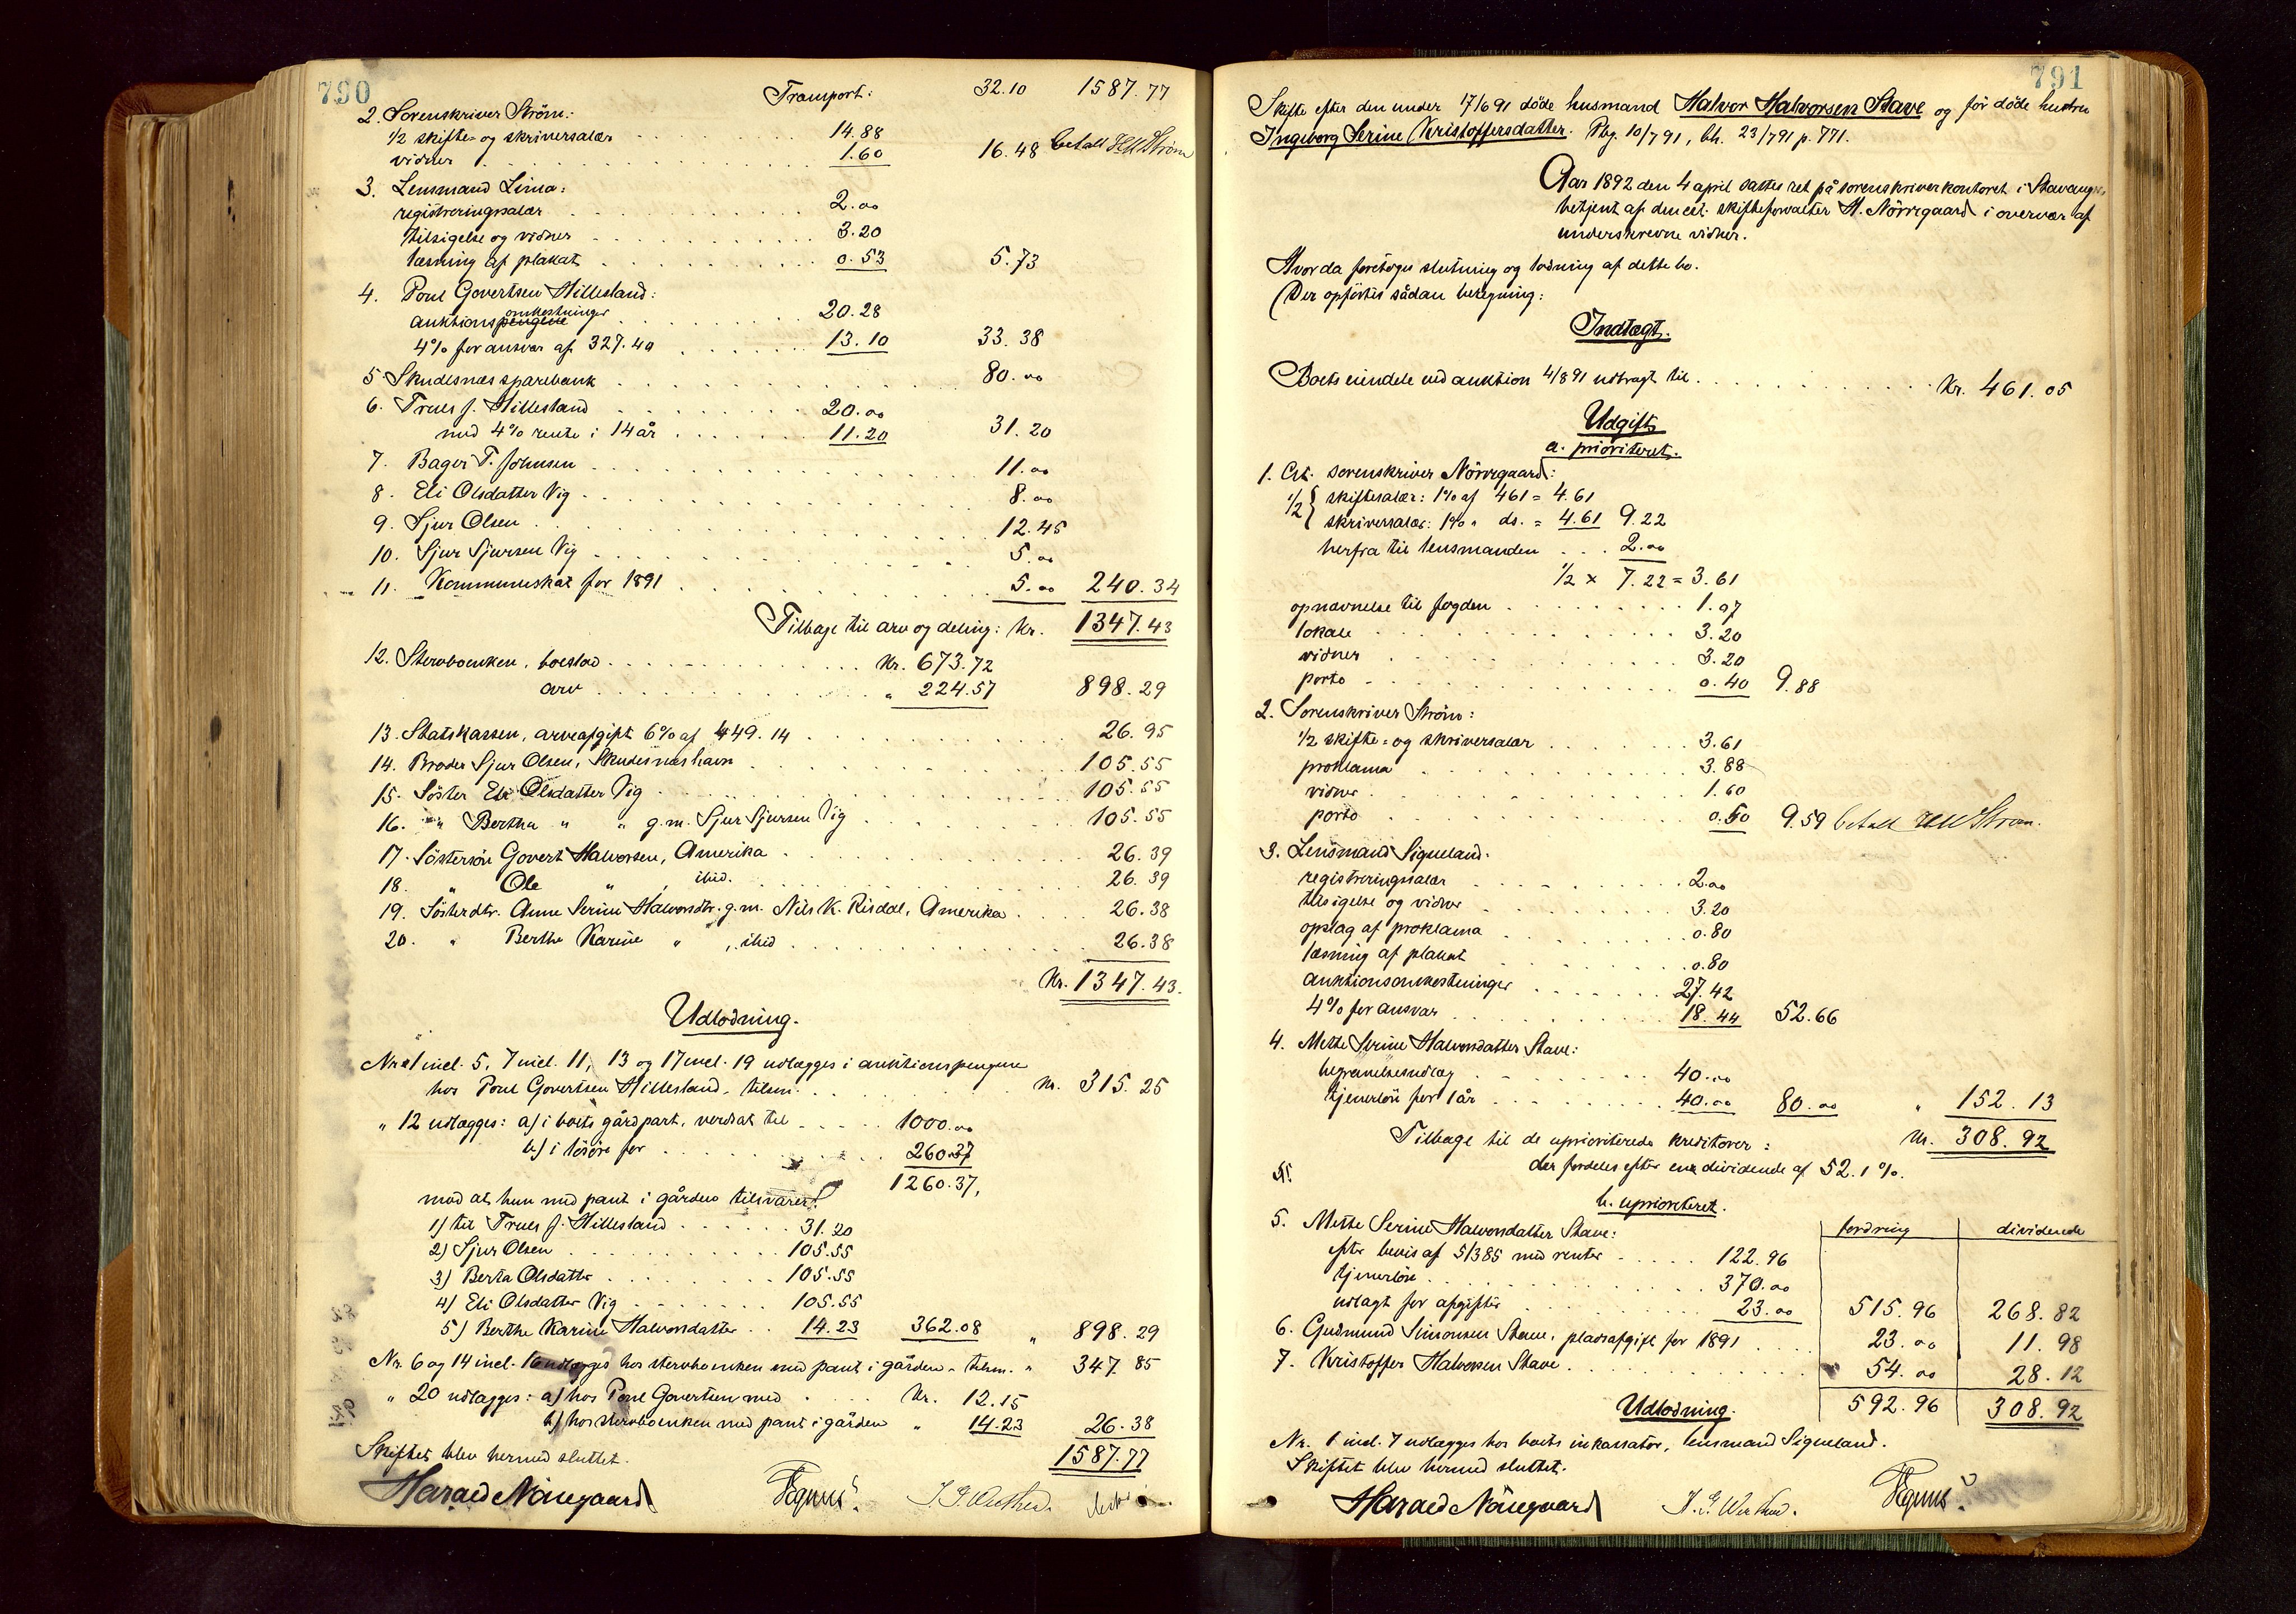 790
Transport: 32.10 1587.77
2. Sorenskriver Ström:
1/2 skifte- og skriversalær 14.88
vidner 1.60 16.48 betalt Ström
3. Lensmand Lima:
registreringssalær 2.00
tilsigelse og vidner 3.20
læsning af plakat 0.53 5.73
4. Poul Govertsen Hillesland:
omkostninger
auktionspengene 20.28
4% for ansvar af 327.40 13.10 33.38
5. Skudesnæs sparebank 80.00
6. Truls J. Hillesland 20.00
med 4% rente i 14 år 11.20 31.20
7. Bager T. Johnsen 11.00
8. Eli Olsdatter Vig 8.00
9. Sjur Olsen 12.45
10. Sjur Sjursen Vig 5.00
11. Kommuneskat for 1891 5.00 240.34
Tilbage til arv og deling: Kr. 1347.43
12. Stervboenken, boeslod Kr. 673.72
arv " 224.57 898.29
13. Statskassen, arveafgift 6% af 449.14 26.95
14. Broder Sjur Olsen, Skudesnæshavn 105.55
15. Söster Eli Olsdatter Vig 105.55
16. " Bertha " " g.m. Sjur Sjursen Vig 105.55
17. Söstersön Govert Halvorsen, Amerika 26.39
18. " Ole " , ibid. 26.39
19. Sösterdtr. Anne Serine Halvorsdtr. g.m. Nils K. Risdal, Amerika 26.38
20. " Berthe Karine " , ibid 26.38
Kr. 1347.43.
Udlodning.
No 1 incl. 5, 7 incl. 11, 13 og 17 incl. 19 udlægges i auktionspengene
hos Poul Govertsen Hillesland, tilsm. Kr. 315.25
" 12 udlægges: a) i boets gårdpart, verdsat til 1000.00
b) i lösöre for 260.37
1260.37,
mod at hun med pant i gården tilsvarer:
1) til Truls J. Hillesland 31.20
2) Sjur Olsen 105.55
3) Berta Olsdatter 105.55
4) Eli Olsdatter Vig 105.55
5) Berthe Karine Halvorsdatter 14.23 362.08 " 898.29
No. 6 og 14 incl. 16 udlægges hos stervboenken med pant i gården - tilsm. " 347.85
" 20 udlægges: a) hos Poul Govertsen med Kr. 12.15
b) hos stervboenken med pant i gården " 14.23 26.38
Skiftet blev hermed sluttet. 1587.77
Harald Nörregaard
791
Skifte efter den under 17/6 91 döde husmand Halvor Halvorsen Stave og för döde hustru
Ingeborg Serine Kristoffersdatter. Pbg. 10/7 91, bh. 23/7 91 p. 771.
Aar 1892 den 4 april sattes ret på sorenskriverkontoret i Stavanger
betjent af den cst. skifteforvalter H. Nörregaard i overvær af
underskrevne vidner.
Hvorda foretoges slutning og lodning af dette bo.
Der opförtes sådan beregning:
Indtægt.
Boets eiendele ved auktion 4/8 91 udbragt til Kr. 461.05
Udgift
a. prioriteret.
1. Cst. sorenskriver Nörregaard:
1/2 { skiftesalær: 1% af 461 = 4.61
skriversalær: 1% " ds. = 4.61 9.22
herfra til lensmanden 2.00
1/2 x 7.22 = 3.61
opnævnelse til fogden 1.07
lokale 3.20
vidner 3.20
porto 0.40 9.88
2. Sorenskriver Ström:
1/2 skifte- og skriversalær 3.61
proklama 3.88
vidner 1.60
porto 0.50 9.59 betalt Ström.
3. Lensmand Sigveland.
registreringssalær 2.00
tilsigelse og vidner 3.20
opslag af proklama 0.80
læsning af plakat 0.80
auktionsomkostninger 27.42
4% for ansvar 18.44 52.66
4. Mette Serine Halvorsdatter Stave:
begravelsesudlæg 40.00
tjenerlön for 1 år 40.00 80.00 " 152.13
Tilbage til de uprioriterede kreditorer: Kr. 308.92
der fordeles efter en dividende af 52.1%.
b. uprioriteret.
fordring dividende
5. Mette Serine Halvorsdatter Stave:
efter bevis af 5/3 85 med renter 122.96
tjenerlön 370.00
udlagt for afgifter 23.00 515.96 268.82
6. Gudmund Simonsen Stave, pladsafgift for 1891 23.00 11.98
7. Kristoffer Halvorsen Stave 54.00 28.12
592.96 308.92
Udlodning.
No. 1 incl. 7 udlægges hos boets inkassator, lensmand Sigveland.
Skiftet blev hermed sluttet.
Harald Nörregaard